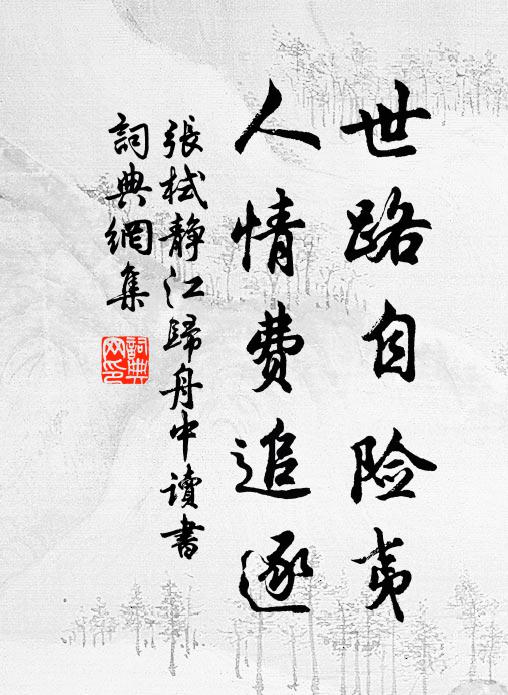 世路自险夷
人情费追逐
張栻静江歸舟中讀書
詞典網集
詞典網印